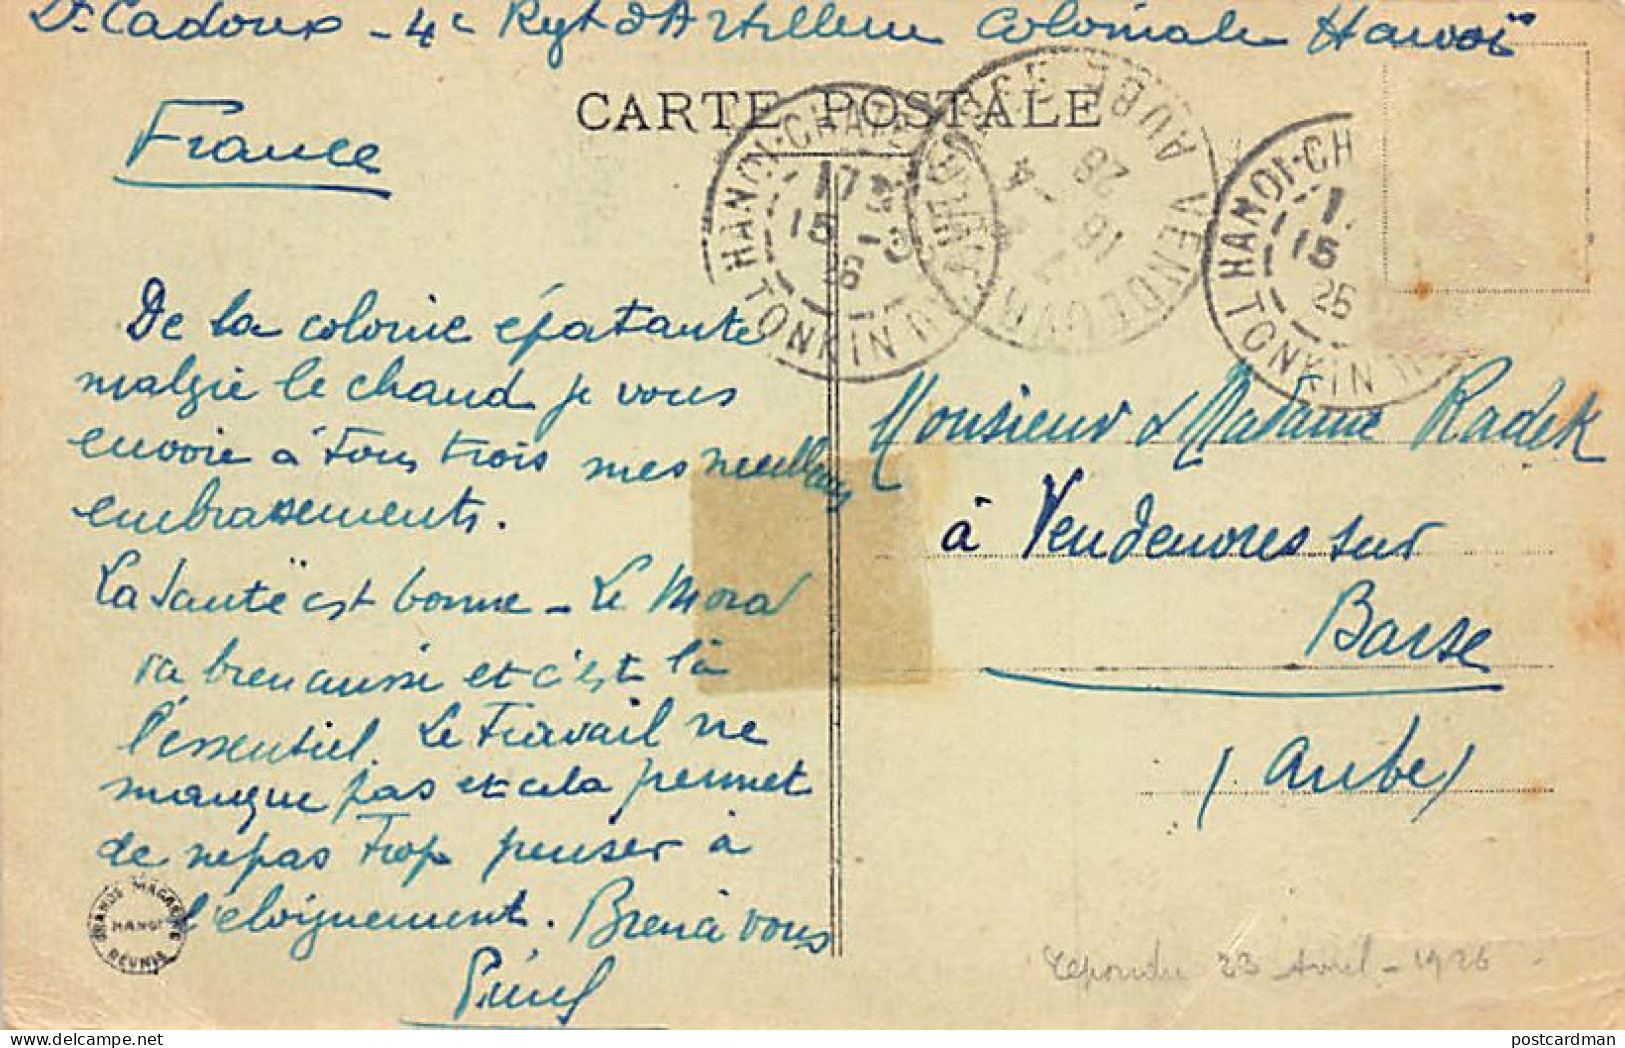 Dr Cadoux - 4e Rgt d'Artillerie Coloniale Hanoï
CARTE POSTALE
France
HANOI-CHA
TONKIN
17
15 -3
26
AUBE VENDEUVRE
16 - 4
26
HANOI-CH
TONKIN
1
15
26
De la colonie épatante
malgré le chaud je vous
envoie à tous trois mes meilleurs
embrassements.
La santé est bonne - Le Moral
va bien aussi et c'est là
l'essentiel. Le travail ne
manque pas et cela permet
de ne pas trop penser à
l'éloignement. Bien à vous
Monsieur & Madame Radek
à Vendeuvres sur
Barse
(Aube)
GRANDS MAGASINS
HANOI
RÉUNIS
répondu 23 Avril - 1926
postcardman